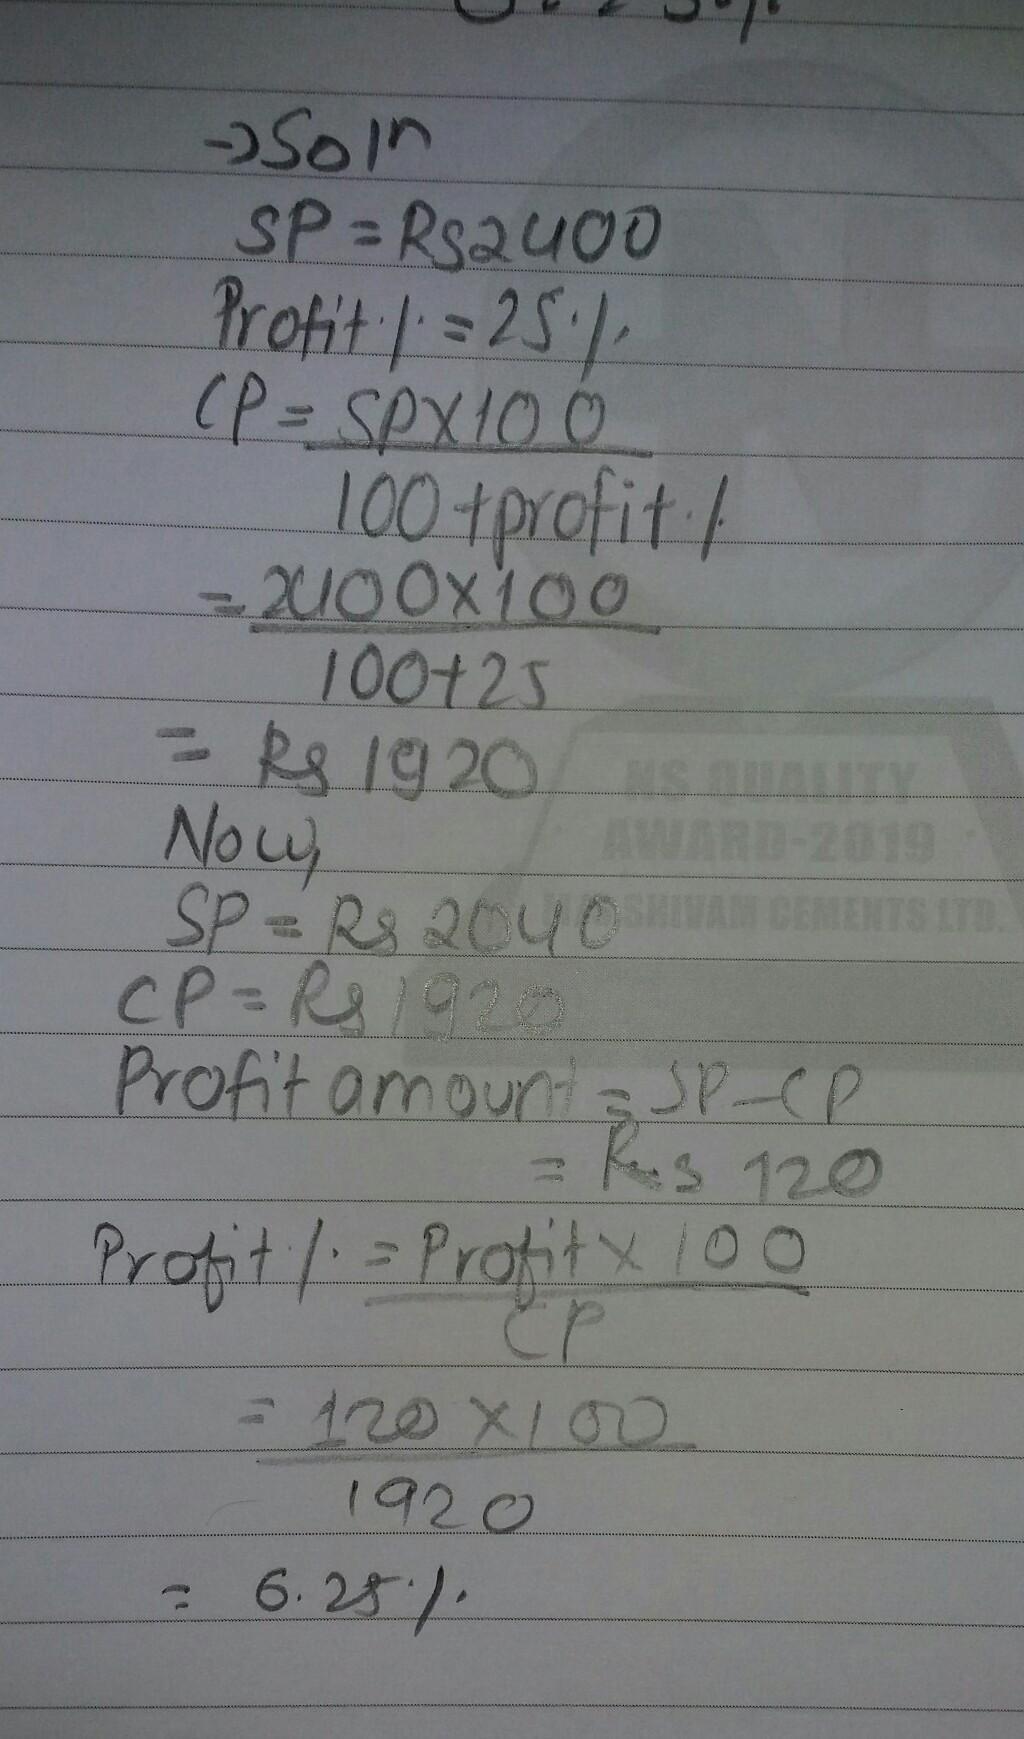 → Soln
SP = Rs 2400
Profit % = 25%
CP = SP×100
100 + profit %
= 2400×100
100+25
= Rs 1920
Now,
SP = Rs 2040
CP = Rs 1920
Profit amount = SP - CP
= Rs 120
Profit % = Profit × 100
CP
= 120 × 100
1920
= 6.25%
NS QUALITY
AWARD-2019
SHIVAM CEMENTS LTD.